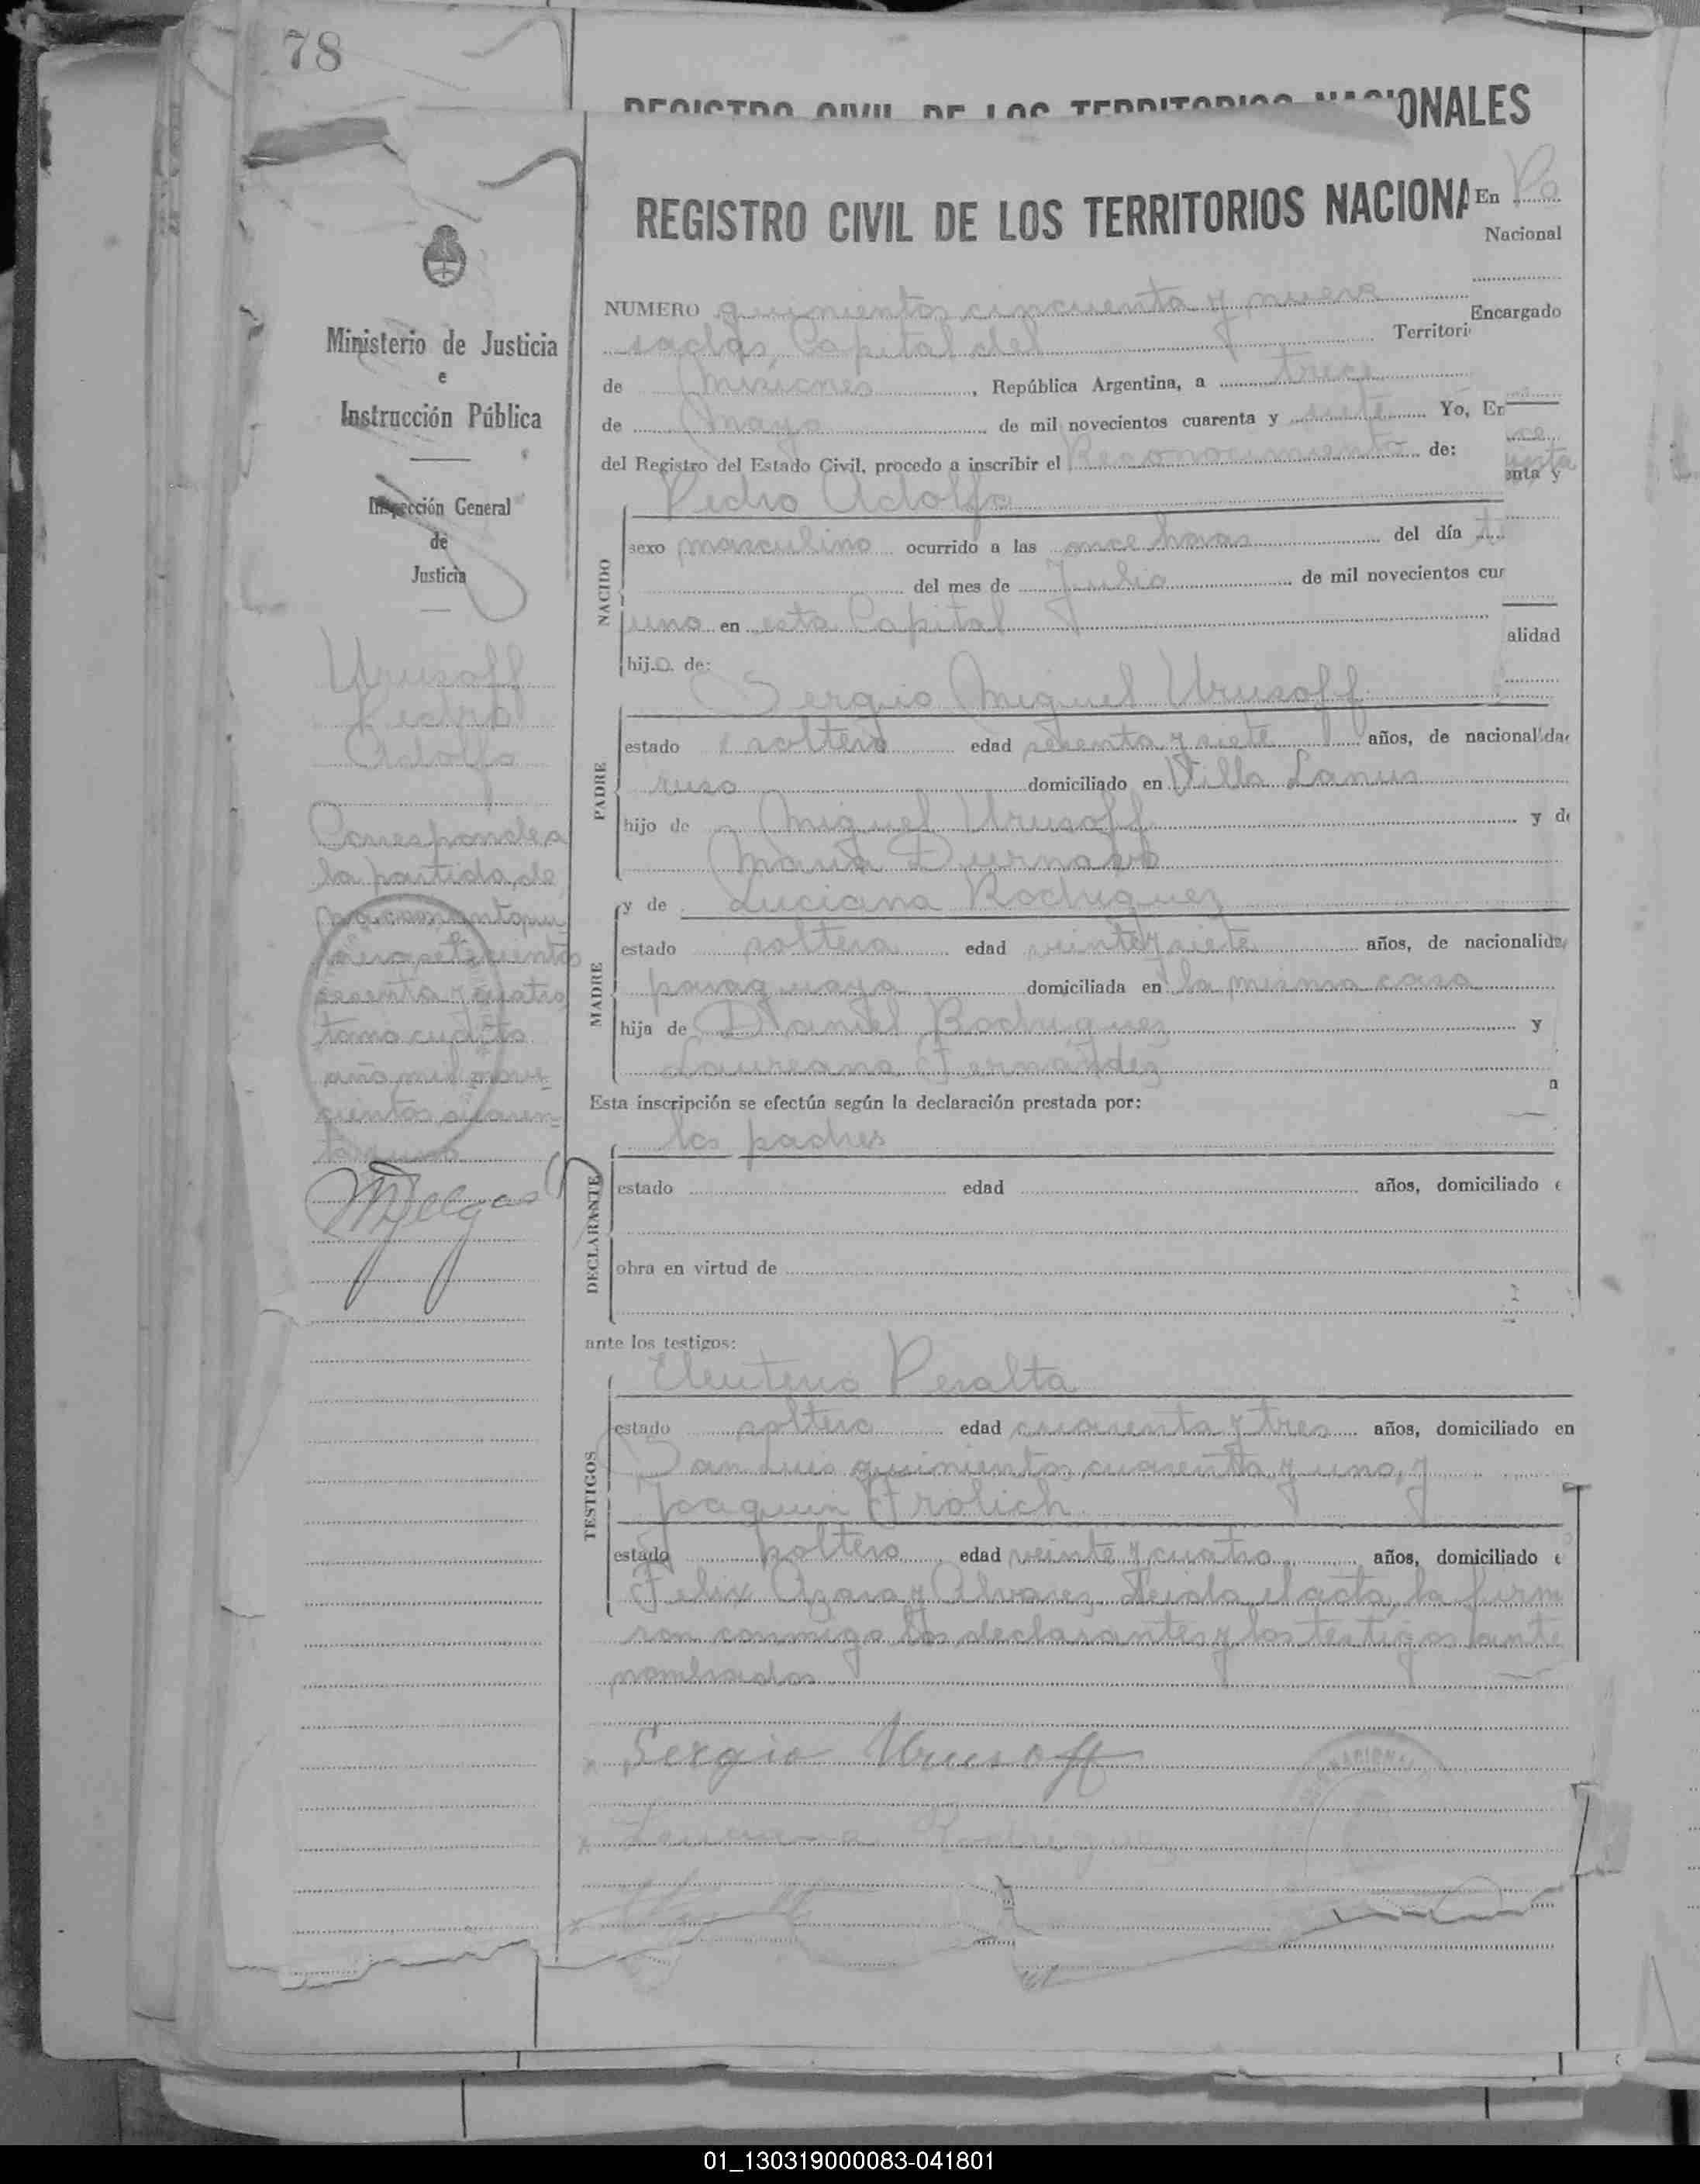 78
REGISTRO CIVIL DE LOS TERRITORIOS NACIONALES
REGISTRO CIVIL DE LOS TERRITORIOS NACIONA
En Po
Nacional
Ministerio de Justicia
e
Instrucción Pública
Inspección General
de
Justicia
Urusoff
Pedro
Adolfo
Corresponde a
la partida de
nacimiento nú
mero setecientos
sesenta y cuatro
tomo cuarto
año mil nove-
cientos cuaren-
ta y uno
NUMERO quinientos cincuenta y nueve
Encargado
sadas, Capital del Territori
de Misiones, República Argentina, a trece
de Mayo de mil novecientos cuarenta y siete Yo, En
del Registro del Estado Civil, procedo a inscribir el Reconocimiento de:
enta y
Pedro Adolfo
NACIDO
sexo masculino ocurrido a las once horas del día t
del mes de Julio de mil novecientos cur
uno en esta Capital
alidad
hijo de:
Sergio Miguel Urusoff
PADRE
estado soltero edad sesenta y siete años, de nacionalidad
ruso domiciliado en Villa Lanus
hijo de Miguel Urusoff y de
Maria
y de Luciana Rodriguez
MADRE
estado soltera edad veinte y siete años, de nacionalida
paraguaya domiciliada en la misma casa
hija de Daniel Rodriguez y
Laureana Fernández
a
Esta inscripción se efectúa según la declaración prestada por:
los padres
DECLARANTE
estado edad años, domiciliado e
obra en virtud de
ante los testigos:
Eleuterio Peralta
TESTIGOS
estado soltero edad cuarenta y tres años, domiciliado en
San Luis quinientos cuarenta y uno, y
Joaquin Frolich
estado soltero edad veinte y cuatro años, domiciliado e
Felix Azara y Alvarez. Leida el acta, la firm
ron conmigo los declarantes y los testigos ante
nombrados
Sergio Urusoff
NACIONAL
01_130319000083-041801